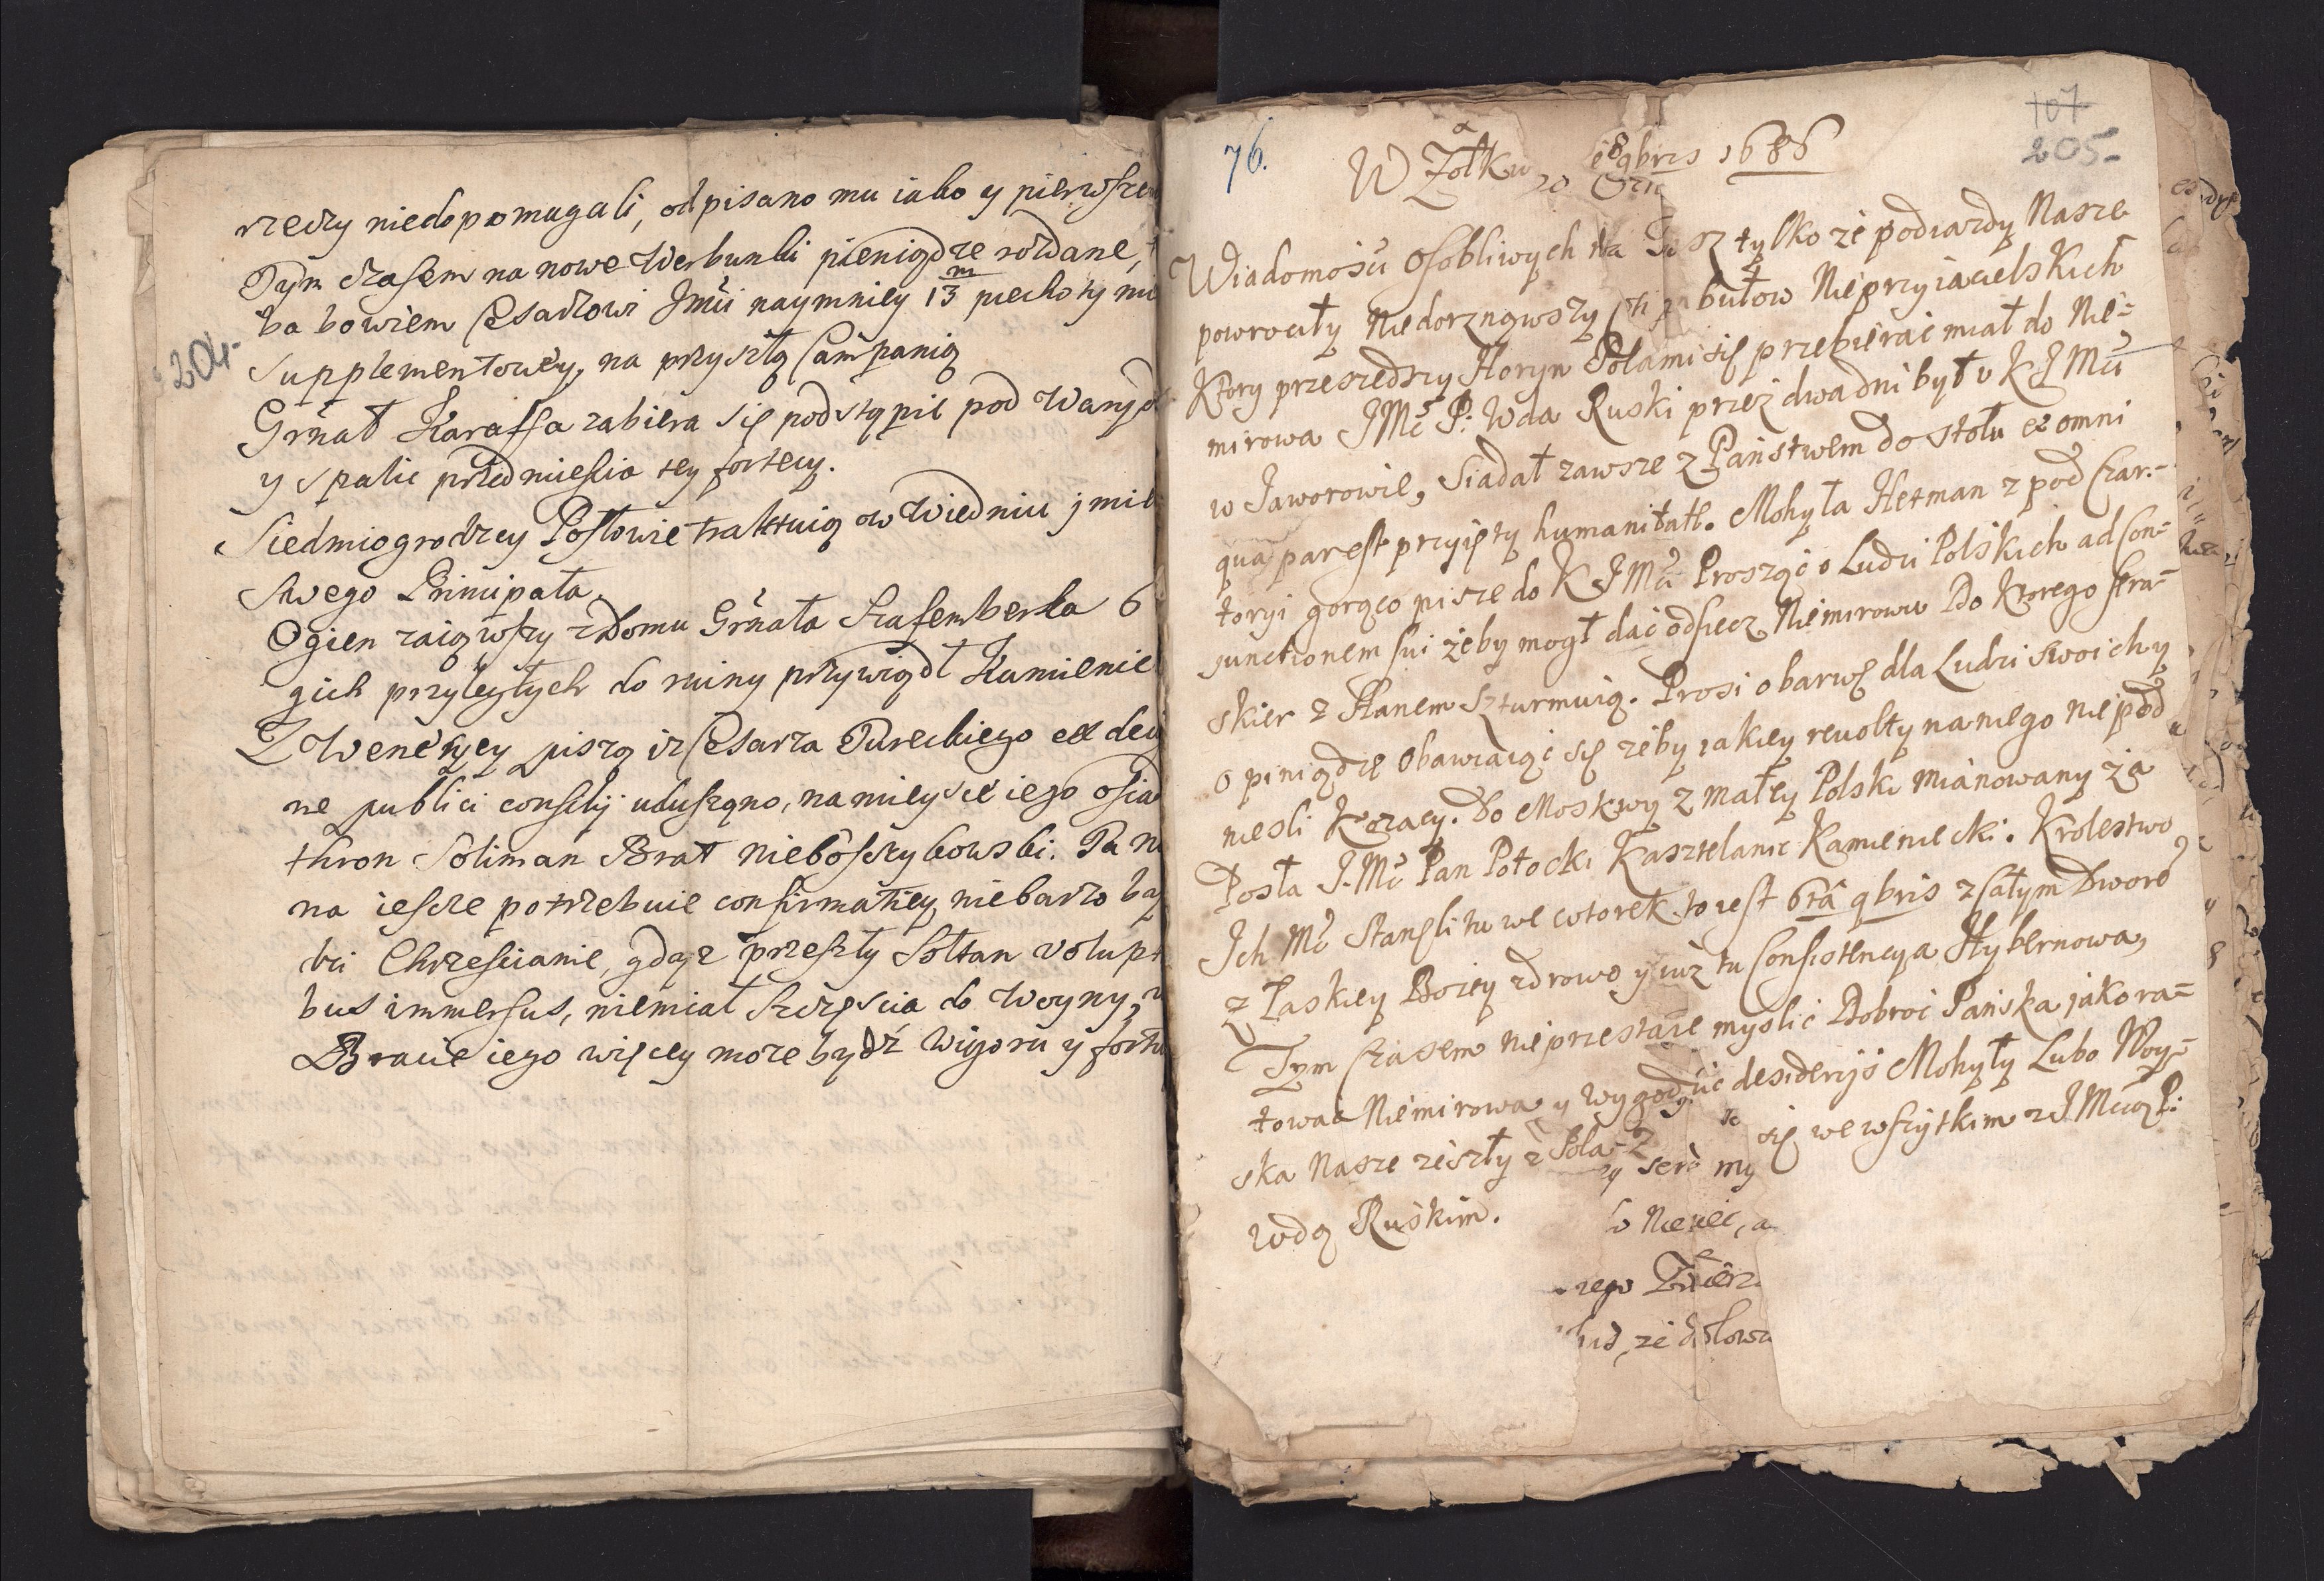 204.
rzeczy niedopomagali, odpisano mu iako y pierwsze
Tym czasem na nowe Werbunki pieniądze rozdane,
ba bowiem Cesarzowi Jmći naymniey 13 m piechoty
supplementowey, na przyszłą Campanią
Grnał Karaffa zabiera się podstąpić pod
y spalic przedmiescia tey fortecy.
Siedmiogrodzcy Posłowie traktuią w Wiedniu
swego Principała.
Ogien zaiąwszy z domu Grnała Szafemberka 6
gich przyległych do ruiny przywiądł Kamienic
Z Weneciey piszą iz Cesarza Tureckiego ex
ne publici consilij uduszono, na mieyscé iego osia
thron Soliman Brat nieboszczykowski. Ta
na iescze potrzebuie confirmatiey, niebarzo
bci Chrzescianie, gdyz przeszły Sołtan volupt
bus immersus, niemiał szczęscia do Woyny,
Bracie iego więcey moze bydź wigoru y
76.
107
205
W Żołkw 8 9bris 1686
Wiadomosci Osobliwych tylko ze podiazdy Nasze
powrociły Niedorznąwszy butow Nieprzyiacielskich
Ktory przeszedszy Horyn Polami się przebierać miał do Nie=
mirowa JMć P: Wda Ruski przez dwa dni był u K J Mći
w Jaworowie, Siadał zawsze z Państwem do stołu ex omni
qua par est przyięty humanitate. Mohyła Hetman z pod Czar=
toryi gorąco pisze do K J Mći Prosząc o Ludzi Polskich ad Con=
junctionem sui żeby mogł dać odsiecz Niemirowu Do Ktorego Sera=
skier z Hanem Szturmuią. Prosi o barwę dla Ludzi swoich y
o piniądze Obawiaiąc się zeby iakiey revolty na niego nie pod
niesli Kozacy. Do Moskwy z małey Polski mianowany za
Posła J. Mć Pan Potocki Kasztelanic Kamieniecki. Krolestwo
Ich Mć Stanęli tu we wtorek to iest 6ta 9bris z całym Dworē
z Łaskiey Bozey zdrowo y iuz tu Consistencya Hybernowa,
Tym Czasem nieprzestaie myslic Dobroć Pańska jako ra=
tować Niemirowa y wygodzić desiderijs Mohyły Lubo Woy=
ska Nasze zeszły z Pola się we wszytkim z J. Mcią P:
Wdą Ruskim.
my
rego